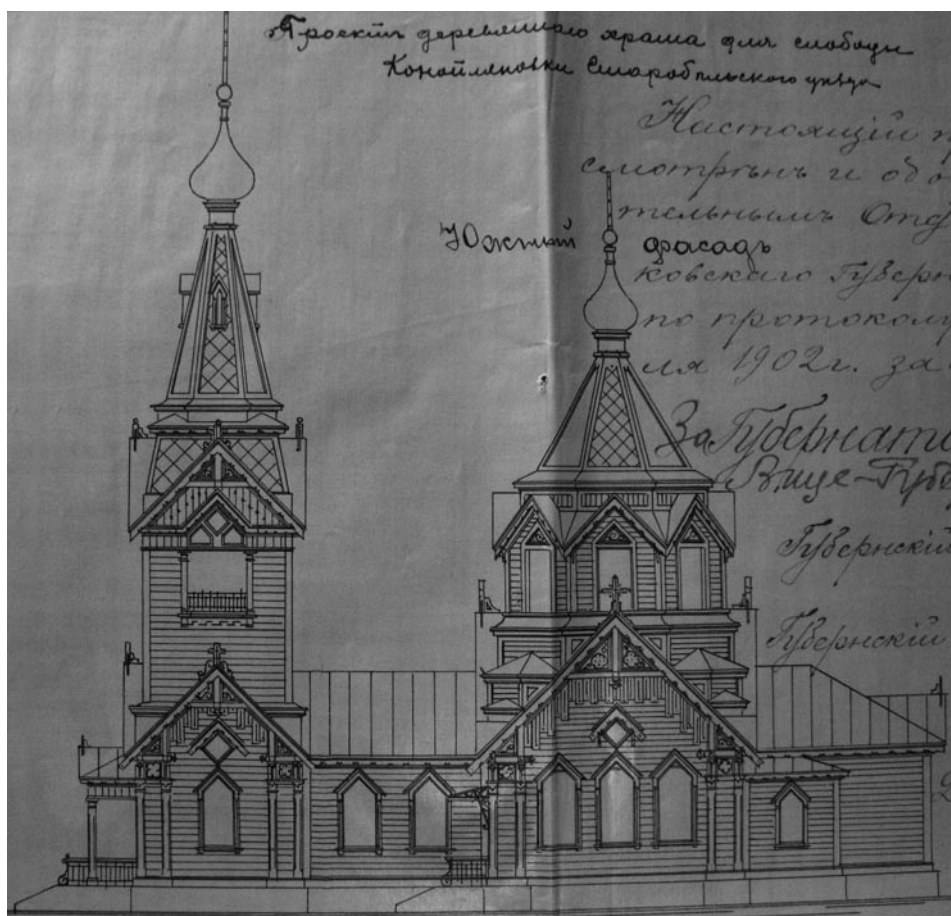 Проектъ деревяннаго храма для слободы
Коноплянovки Старобѣльскаго уѣзда
Южный фасадъ
Настоящій п
смотрѣнъ и одо
тельнымъ Отд
ковскаго Губерн
по протоколу
ля 1902г. за
За Губернато
Вице-Губе
Губернскій
Губернскій